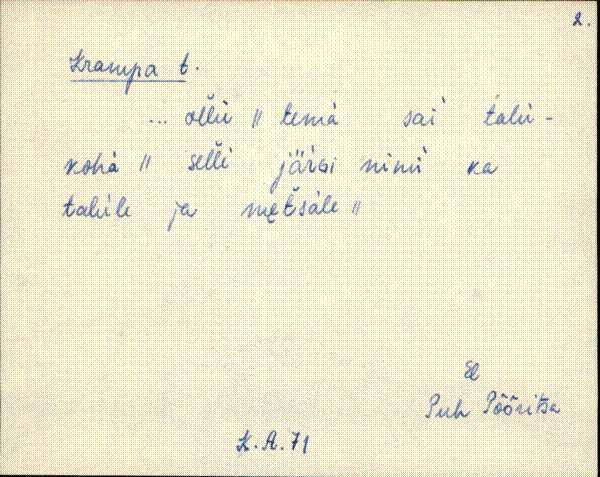 2.
Krampa t.
... olĺlù || temà sai talù-
kohà || selĺi järsi nimì ka
talule ja mętšàle ||
El
Puh Pööritsa
K.A.71